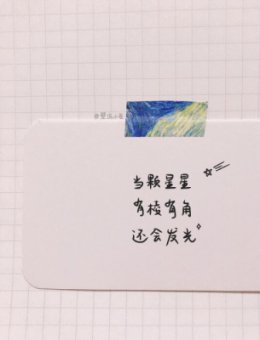 当颗星星
有棱有角
还会发光